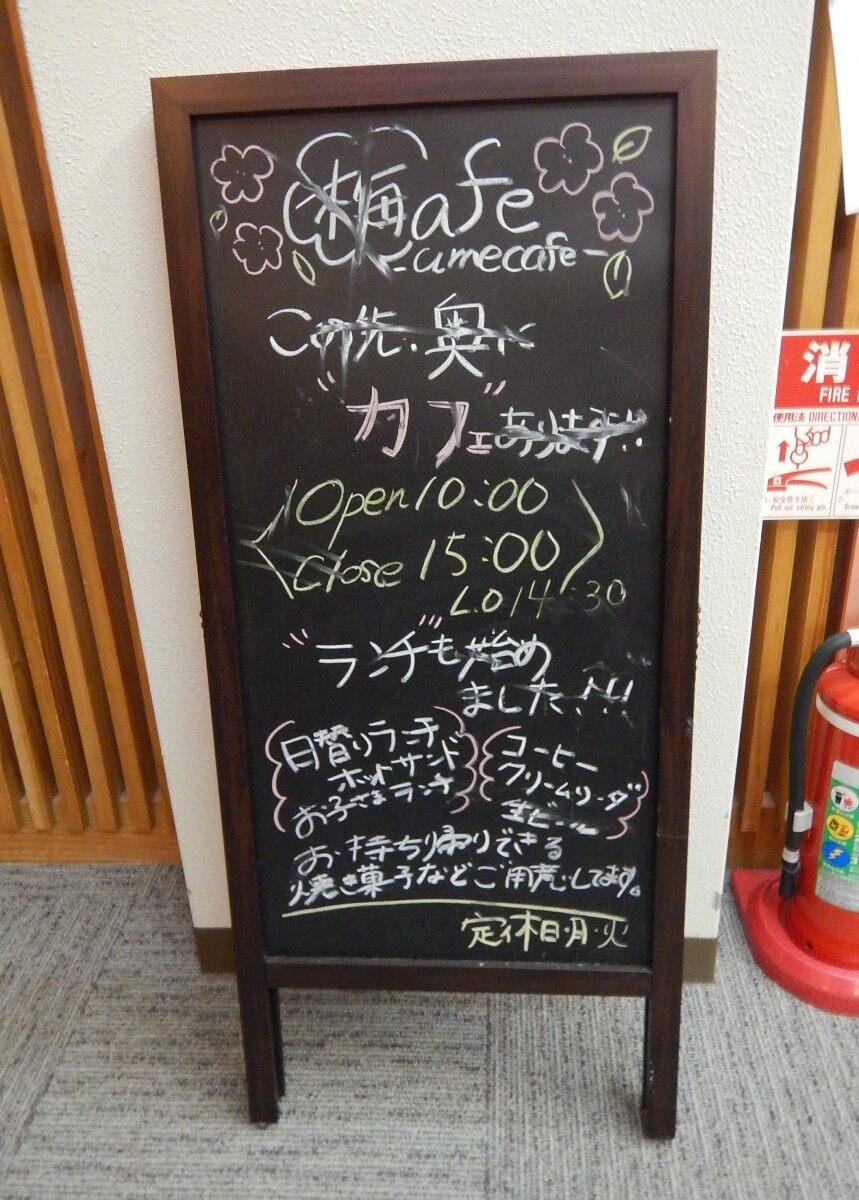 梅cafe
-umecafe-
この先、奥に
"カフェ"あります!!
Open 10:00
Close 15:00
L.O 14:30
"ランチ"も始め
ました!!!
日替りランチ
ホットサンド
お子さまランチ
コーヒー
クリームソーダ
生ビール
お持ち帰りできる
焼き菓子などご用意してます。
定休日・月・火
消
FIRE
使用法 DIRECTION
1・安全栓を抜く
Pull out safety pin